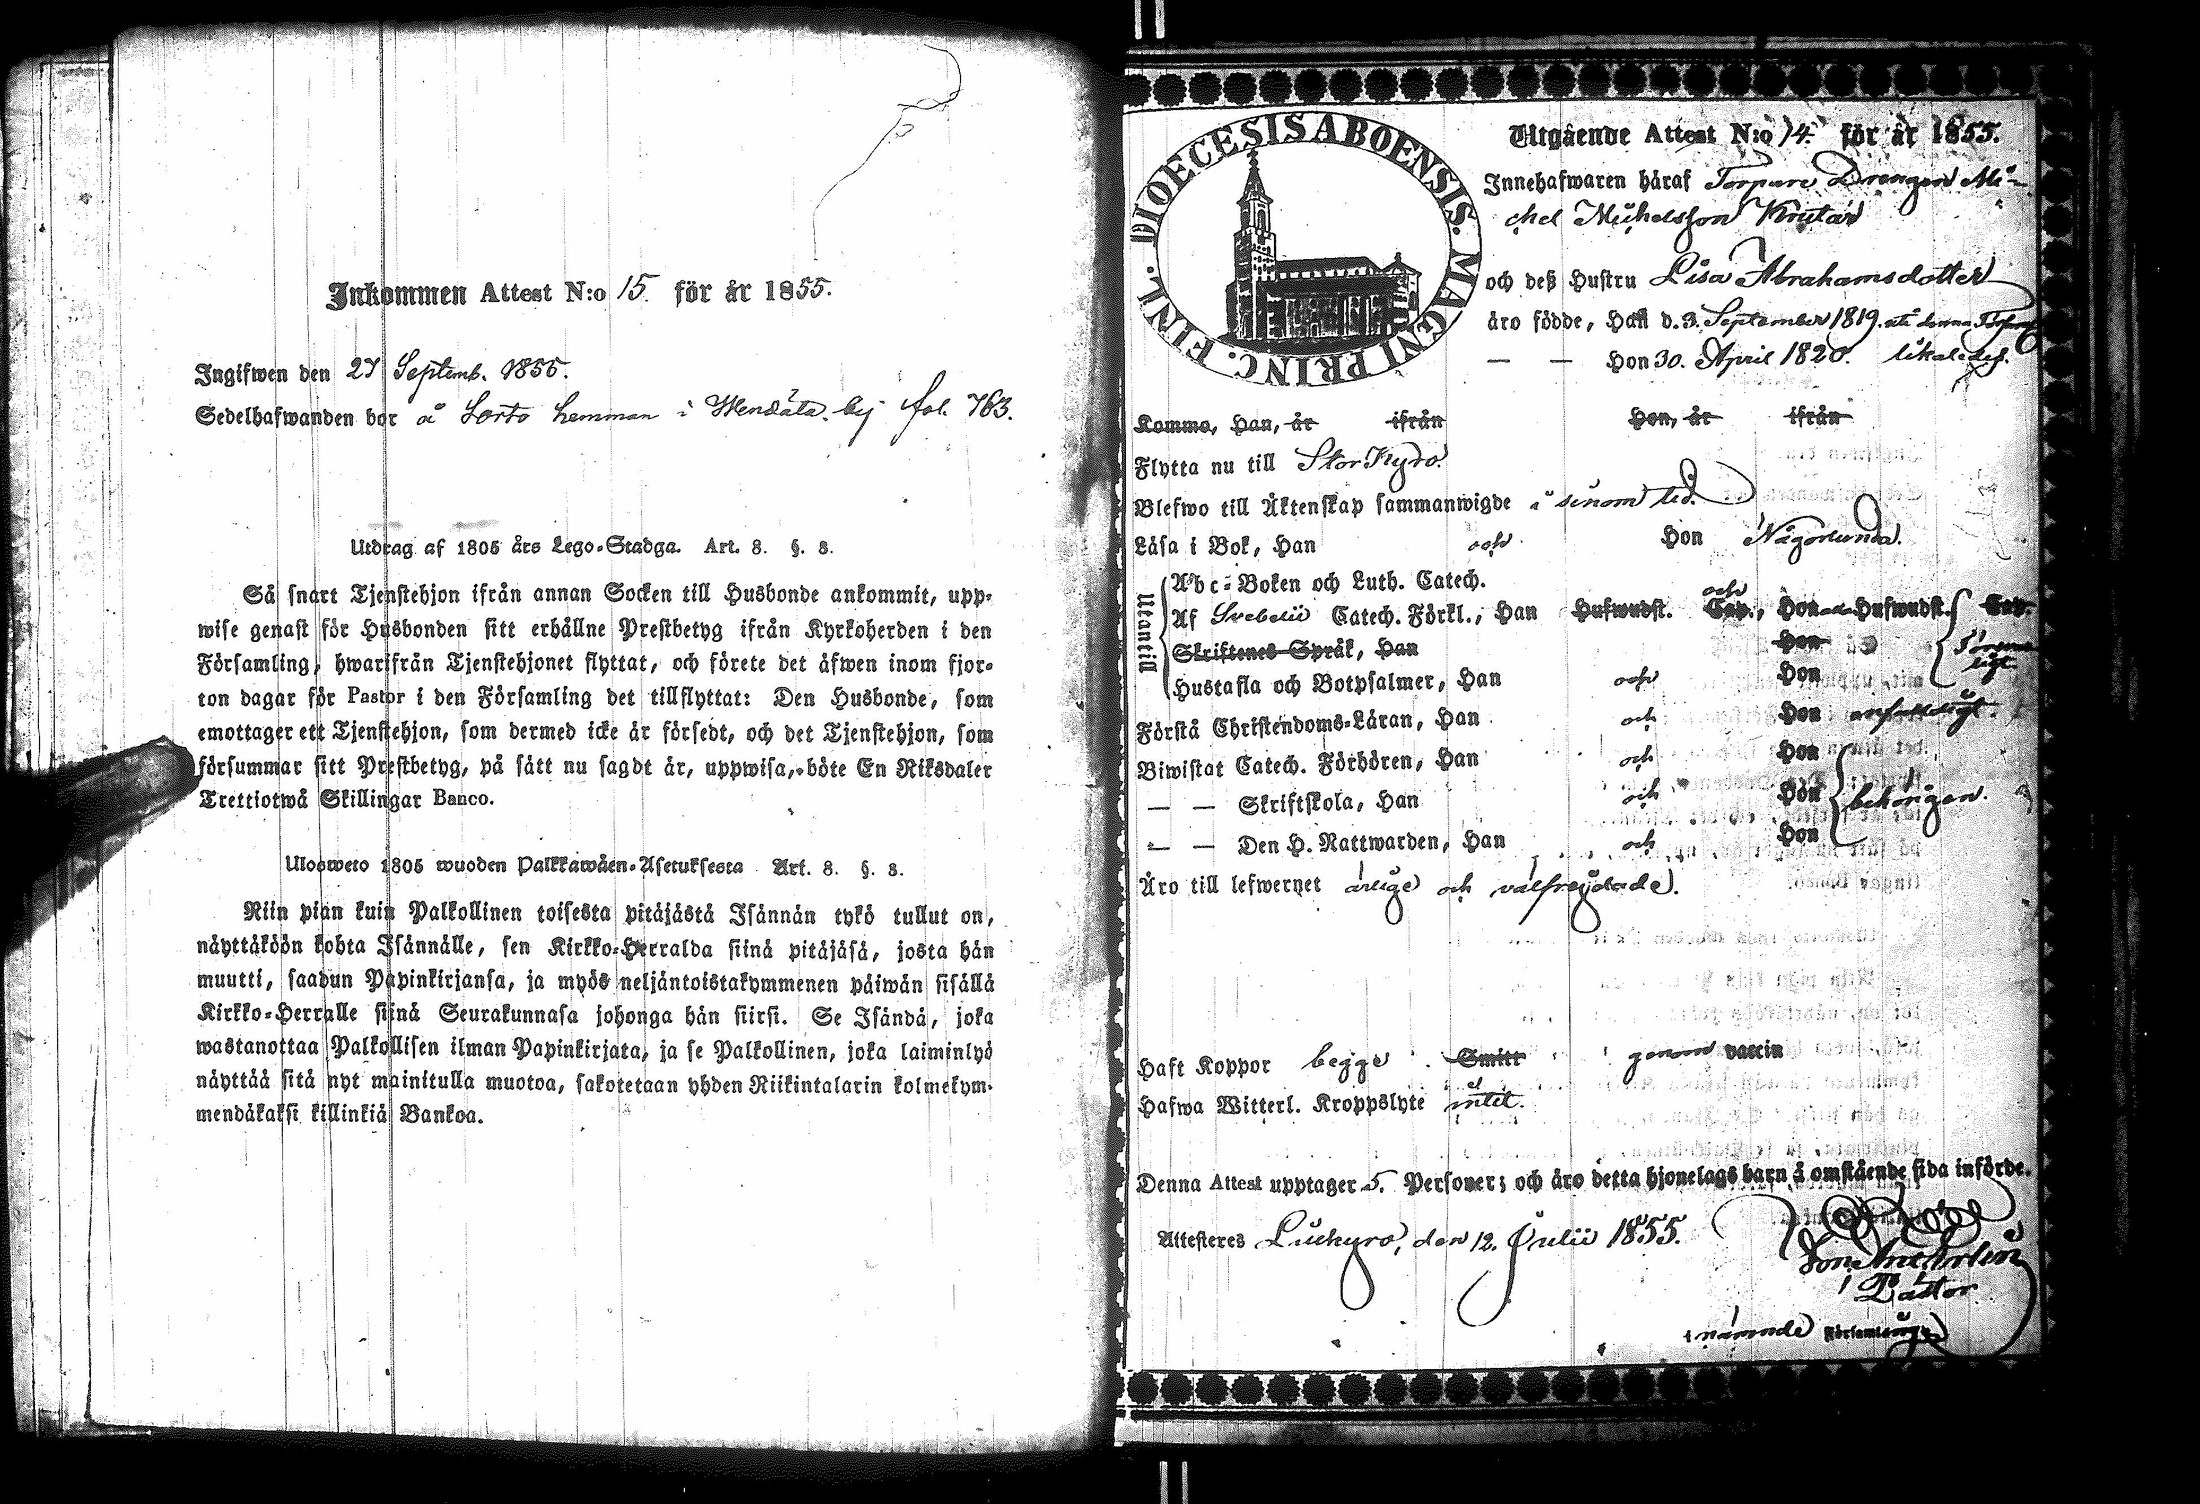 Inkommen Attest N:o 15. för år 1855.
Ingifwen den 27 Septemb. 1855.
Sedelhafwanden bor å Lorto hemman i Wendälä by fol. 763.
Utdrag af 1805 års Lego-Stadga. Art. 8. §. 8.
Så snart Tjenstehjon ifrån annan Socken till Husbonde ankommit, upp-
wise genast för Husbonden sitt erhållne Prestbetyg ifrån Kyrkoherden i den
Församling, hwarifrån Tjenstehjonet flyttat, och förete det äfwen inom fjor-
ton dagar för Pastor i den Församling det tillflyttat: Den Husbonde, som
emottager ett Tjenstehjon, som dermed icke är försedt, och det Tjenstehjon, som
försummar sitt Prestbetyg, på sätt nu sagdt är, uppwisa, böte En Riksdaler
Trettiotwå Skillingar Banco.
Ulosweto 1805 wuoden Palkkawäen-Asetuksesta Art. 8. §. 8.
Niin pian kuin Palkollinen toisesta pitäjästä Isännän tykö tullut on,
näyttäköön kohta Isännälle, sen Kirkko-Herralda siinä pitäjäsä, josta hän
muutti, saadun Papinkirjansa, ja myös neljäntoistakymmenen päiwän sisällä
Kirkko-Herralle siinä Seurakunnasa johonga hän siirsi. Se Isändä, joka
wastanottaa Palkollisen ilman Papinkirjata, ja se Palkollinen, joka laiminlyö
näyttää sitä nyt mainitulla muotoa, sakotetaan yhden Riikintalarin kolmekym-
mendäkaksi killinkiä Bankoa.
DIOECESIS ABOENSIS. MAGNI PRINC. FINL.
Utgående Attest N:o 14. för år 1855.
Innehafwaren häraf Torpare Drängen Mi-
chel Michelsson Knutar
och deß Hustru Lisa Abrahamsdotter
äro födde, Han d. 3. September 1819. uti denna Förs.
— — Hon 30. April 1820. likaledes.
Kommo, Han, år ifrån Hon, år ifrån
Flytta nu till StorKyro.
Blefwo till Äktenskap sammanwigde i sinom tid.
Läsa i Bok, Han och Hon Någorlunda.
Utantill
Abc-Boken och Luth. Catech.
Af Svebelii Catech. Förkl., Han Hufwudst. Cap., och Hon Hufwudst. Cap.
Skriftenes Språk, Han Hon
Hustafla och Botpsalmer, Han och Hon
Förstå Christendoms-Läran, Han och Hon
Biwistat Catech. Förhören, Han och Hon
— — Skriftskola, Han och Hon behörigen.
— — Den H. Nattwarden, Han och Hon
Äro till lefwernet ärlige och välfrejdade.
Haft Koppor begge Smitt genom vaccin
Hafwa Witterl. Kroppslyte intet.
Denna Attest upptager 5. Personer; och äro detta hjonelags barn å omstående sida införde.
Attesteres Lillkyro, den 12. Julii 1855.
Pastor
i nämnde Församling